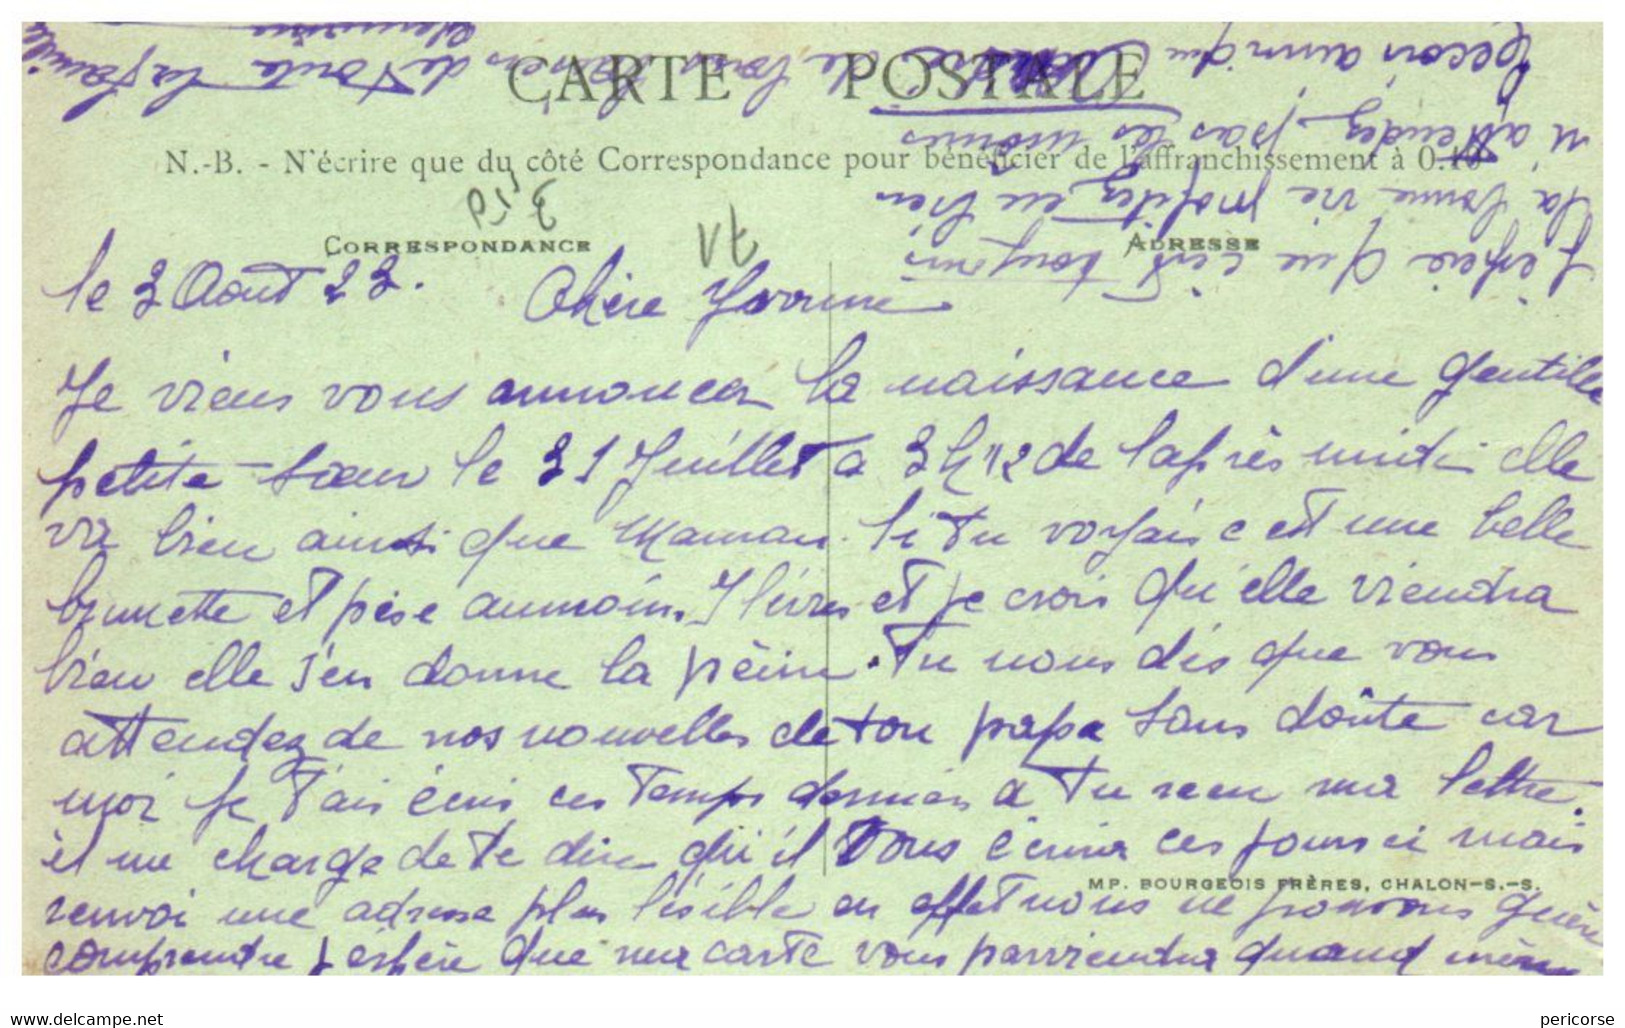 CARTE POSTALE
N.-B. - N'écrire que du côté Correspondance pour bénéficier de l'affranchissement à 0.10
CORRESPONDANCE
ADRESSE
le 3 Août 23. Chère Yvonne
Je viens vous annoncer la naissance d'une gentille
petite sœur le 31 Juillet a 3h 1/2 de laprès midi elle
va bien ainsi que Maman. Si tu voyais c est une belle
brunette et pèse aumoins 7 livres et je crois qu'elle viendra
bien elle s'en donne la peine. Tu nous dis que vous
attendez de nos nouvelles de ton papa sans doûte car
moi je t'ais écris ces temps derniers a tu recu ma lettre.
il me charge de te dire qui'il vous écrira ces jours ci mais
renvoi une adresse plus lisible en effet nous ne pouvons guère
comprendre j espère que ma carte vous parviendra quand même
J'espère que c'est toujours
la bonne vie profitez en bien
n'attendez pas les
Recois ainsi que de bons baisers de toute la famille
MP. BOURGEOIS FRÈRES, CHALON-S.-S.
www.delcampe.net
pericorse